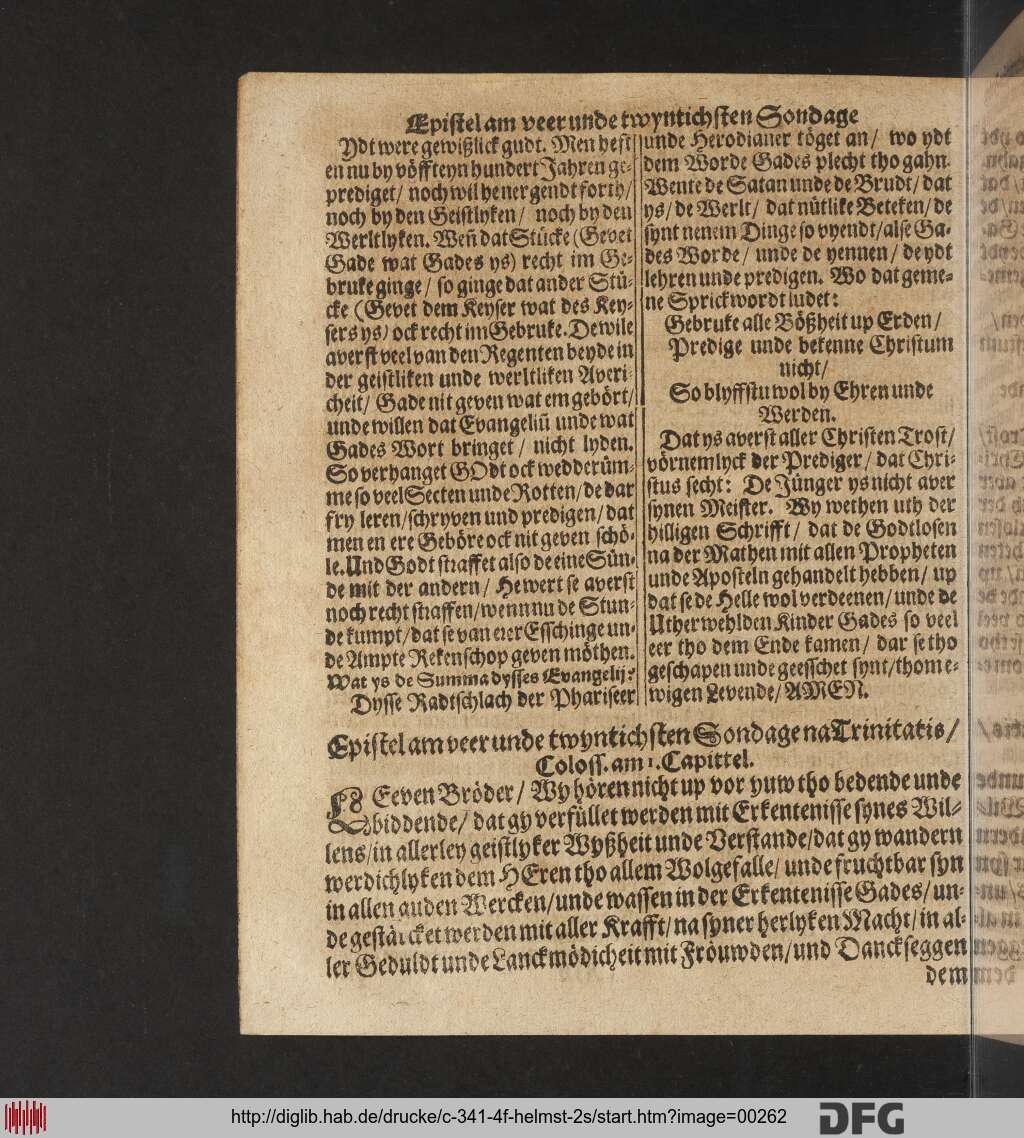 Epistel am veer unde twyntichsten Sondage
Ydt were gewißlick gudt. Men heft
en nu by vöffteyn hundert Jahren ge-
prediget/ noch wil he nergendt forth/
noch by den Geistlyken/ noch by den
Werltlyken. Weñ dat Stücke (Gevet
Gade wat Gades ys) recht im Ge-
bruke ginge/ so ginge dat ander Stü-
cke (Gevet dem Keyser wat des Key-
sers ys) ock recht im Gebruke. Dewile
averst veel van den Regenten beyde in
der geistliken unde werltliken Averi-
cheit/ Gade nit geven wat em gebört/
unde willen dat Evangeliū unde wat
Gades Wort bringet/ nicht lyden.
So verhanget GOdt ock wedderüm-
me so veel Secten unde Rotten/ de dar
fry leren/ schryven und predigen/ dat
men en ere Geböre ock nit geven schö-
le. Und Godt straffet also de eine Sün-
de mit der andern/ He wert se averst
noch recht straffen/ wenn nu de Stun-
de kumpt/ dat se van erer Esschinge un-
de Ampte Rekenschop geven möthen.
Wat ys de Summa dysses Evangelij?
Dysse Radtschlach der Phariseer
unde Herodianer töget an/ wo ydt
dem Worde Gades plecht tho gahn.
Wente de Satan unde de Brudt/ dat
ys/ de Werlt/ dat nütlike Beteken/ de
synt nenem Dinge so vyendt/ alse Ga-
des Worde/ unde de yennen/ de ydt
lehren unde predigen. Wo dat geme-
ne Sprickwordt ludet:
Gebruke alle Bößheit up Erden/
Predige unde bekenne Christum
nicht/
So blyffstu wol by Ehren unde
Werden.
Dat ys averst aller Christen Trost/
vörnemlyck der Prediger/ dat Chri-
stus secht: De Jünger ys nicht aver
synen Meister. Wy wethen uth der
hilligen Schrifft/ dat de Godtlosen
na der Mathen mit allen Propheten
unde Aposteln gehandelt hebben/ up
dat se de Helle wol verdeenen/ unde de
Utherwehlden Kinder Gades so veel
eer tho dem Ende kamen/ dar se tho
geschapen unde geesschet synt/ thom e-
wigen Levende/ AMEN.
Epistel am veer unde twyntichsten Sondage na Trinitatis/
Coloss. am 1. Capittel.
LEeven Bröder/ Wy hören nicht up vor yuw tho bedende unde
biddende/ dat gy verfüllet werden mit Erkentenisse synes Wil-
lens/ in allerley geistlyker Wyßheit unde Verstande/ dat gy wandern
werdichlyken dem HEren tho allem Wolgefalle/ unde fruchtbar syn
in allen guden Wercken/ unde wassen in der Erkentenisse Gades/ un-
de gestärcket werden mit aller Krafft/ na syner herlyken Macht/ in al-
ler Geduldt unde Lanckmödicheit mit Fröuwden/ und Danckseggen
dem
http://diglib.hab.de/drucke/c-341-4f-helmst-2s/start.htm?image=00262
DFG